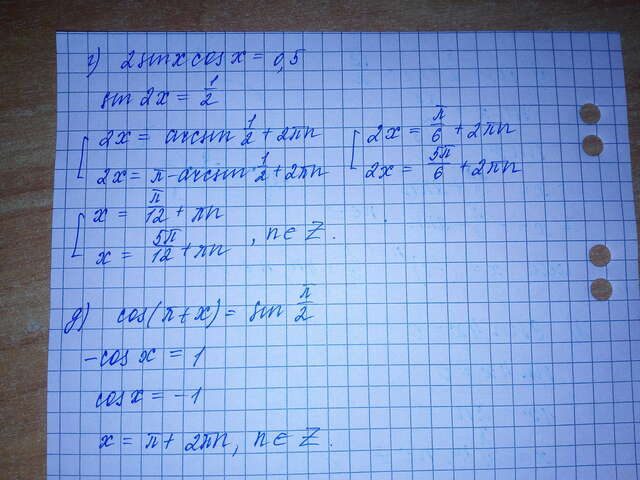 г) 2sinxcosx = 0,5
sin 2x = 1/2
[ 2x = arcsin 1/2 + 2πn [ 2x = π/6 + 2πn
2x = π - arcsin 1/2 + 2πn 2x = 5π/6 + 2πn
[ x = π/12 + πn
x = 5π/12 + πn , n ∈ Z.
д) cos(π+x) = sin π/2
-cos x = 1
cosx = -1
x = π + 2πn, n ∈ Z.